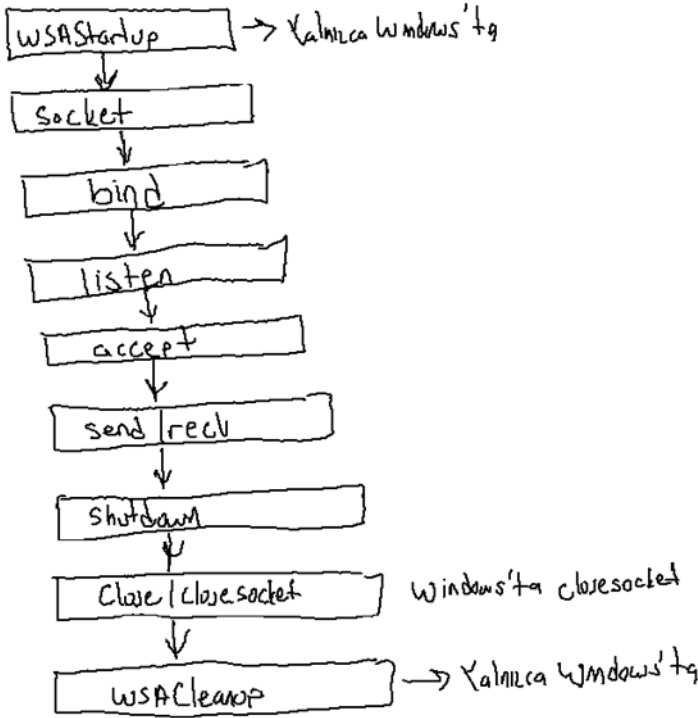 WSAStartup → Yalnızca Windows'ta
socket
bind
listen
accept
send | recv
shutdown
Close / closesocket Windows'ta closesocket
WSACleanup → Yalnızca Windows'ta